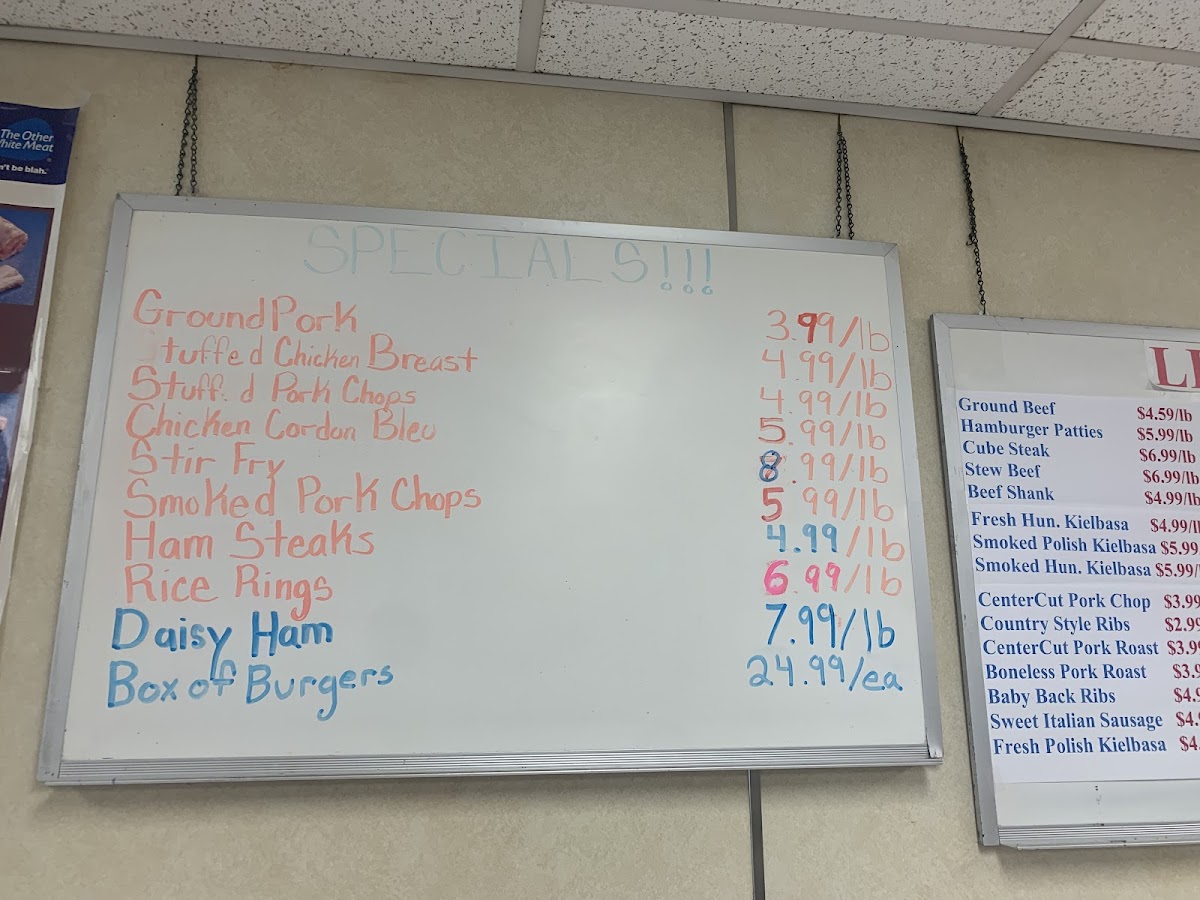 The Other
White Meat
n't be blah.
SPECIALS!!!
Ground Pork 3.99/lb
tuffed Chicken Breast 4.99/lb
Stuff.d Pork Chops 4.99/lb
Chicken Cordon Bleu 5.99/lb
Stir Fry 8.99/lb
Smoked Pork Chops 5.99/lb
Ham Steaks 4.99/lb
Rice Rings 6.99/lb
Daisy Ham 7.99/lb
Box of Burgers 24.99/ea
Ground Beef $4.59/lb
Hamburger Patties $5.99/lb
Cube Steak $6.99/lb
Stew Beef $6.99/lb
Beef Shank $4.99/lb
Fresh Hun. Kielbasa $4.99/l
Smoked Polish Kielbasa $5.99
Smoked Hun. Kielbasa $5.99/
CenterCut Pork Chop $3.99
Country Style Ribs $2.99
CenterCut Pork Roast $3.9
Boneless Pork Roast $3.9
Baby Back Ribs $4.9
Sweet Italian Sausage $4.
Fresh Polish Kielbasa $4.